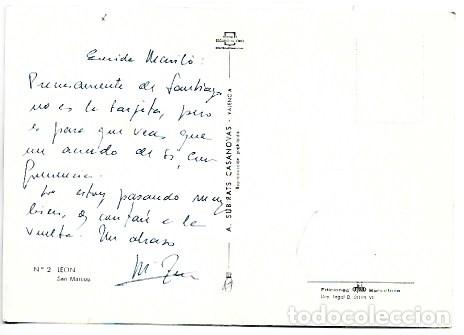 Querida Mariló:
Precisamente de Santiago
no es la tarjeta, pero
es para que veas que
me acuerdo de ti, con
frecuencia.
Lo estoy pasando muy
bien, os contaré a la
vuelta. Un abrazo
Nº 2 LEON
San Marcos
A. SUBIRATS CASANOVAS - VALENCIA
Reproducción prohibida
Ediciones Barcelona
Dep. legal B.
todocoleccion